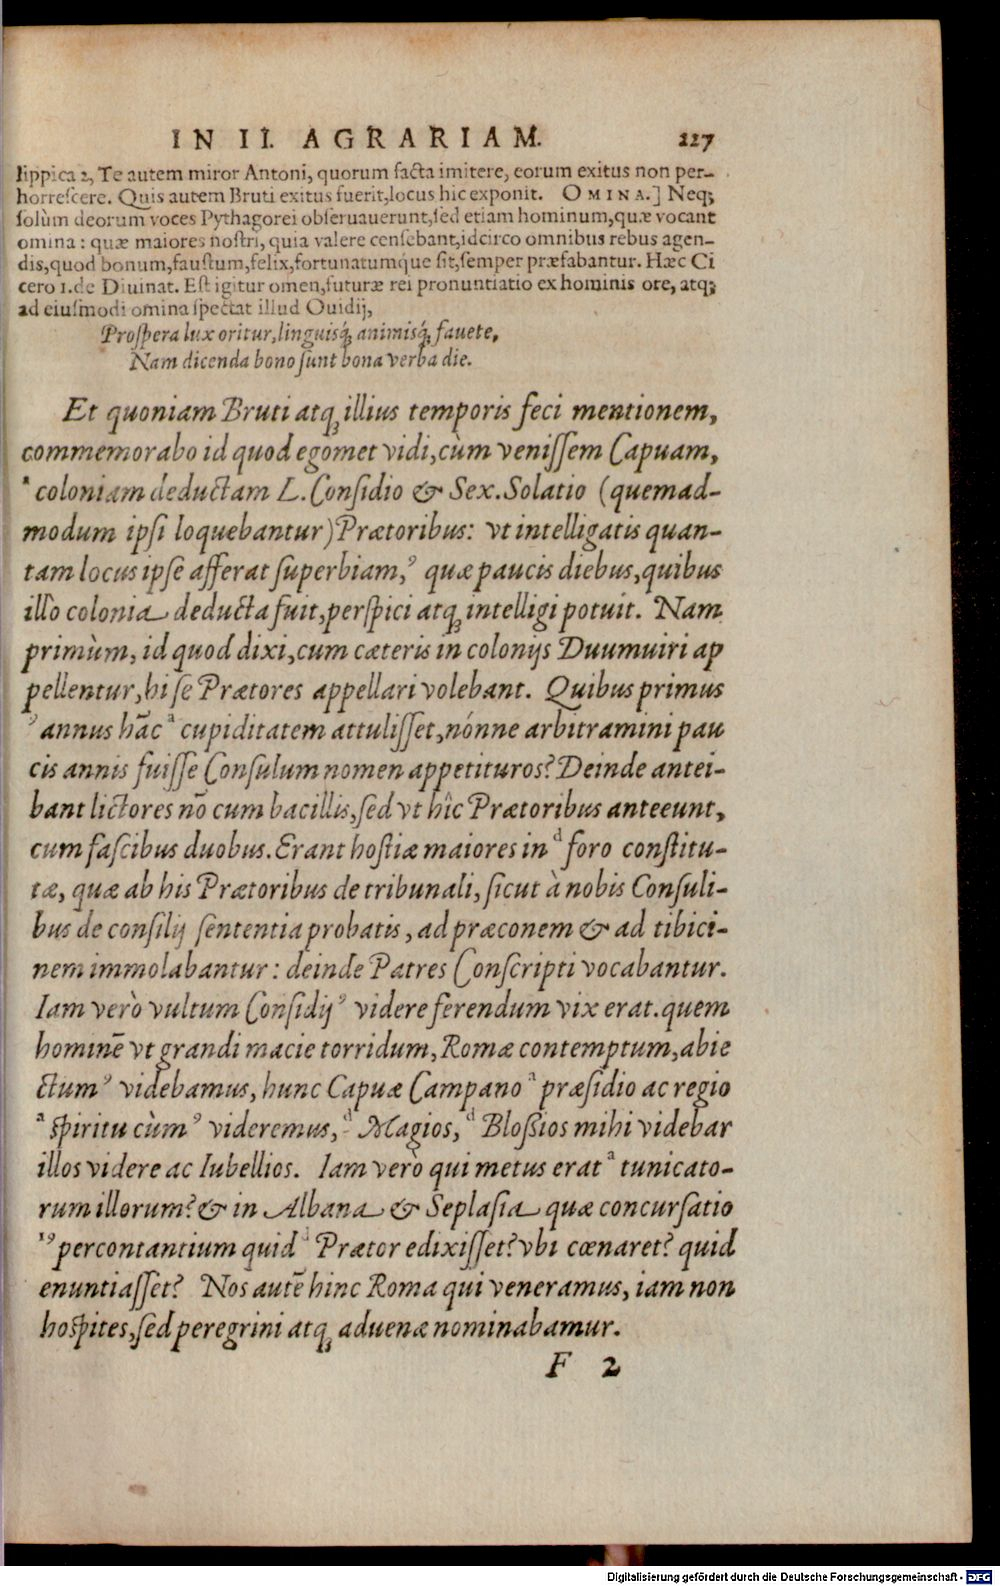 IN II. AGRARIAM. 227
lippica 2, Te autem miror Antoni, quorum facta imitere, eorum exitus non per-
horrescere. Quis autem Bruti exitus fuerit,locus hic exponit. OMINA.] Neq;
solùm deorum voces Pythagorei obseruauerunt,sed etiam hominum,quæ vocant
omina: quæ maiores nostri, quia valere censebant,idcirco omnibus rebus agen-
dis,quod bonum,faustum,felix,fortunatumque sit,semper præfabantur. Hæc Ci
cero 1.de Diuinat. Est igitur omen,futuræ rei pronuntiatio ex hominis ore, atq;
ad eiusmodi omina spectat illud Ouidij,
Prospera lux oritur,linguisq́; animisq́; fauete,
Nam dicenda bono sunt bona verba die.
Et quoniam Bruti atq; illius temporis feci mentionem,
commemorabo id quod egomet vidi,cùm venissem Capuam,
ª coloniam deductam L. Considio & Sex. Solatio (quemad-
modum ipsi loquebantur) Prætoribus: vt intelligatis quan-
tam locus ipse afferat superbiam,⁹ quæ paucis diebus,quibus
illò colonia deducta fuit,perspici atq; intelligi potuit. Nam
primùm, id quod dixi,cum cæteris in colonijs Duumuiri ap
pellentur,hi se Prætores appellari volebant. Quibus primus
⁹ annus hāc ª cupiditatem attulisset,nónne arbitramini pau
cis annis fuisse Consulum nomen appetituros? Deinde antei-
bant lictores nō cum bacillis,sed vt hîc Prætoribus anteeunt,
cum fascibus duobus. Erant hostiæ maiores in ᵈ foro constitu-
tæ, quæ ab his Prætoribus de tribunali, sicut à nobis Consuli-
bus de consilij sententia probatis, ad præconem & ad tibici-
nem immolabantur: deinde Patres Conscripti vocabantur.
Iam verò vultum Considij ⁹ videre ferendum vix erat. quem
hominē vt grandi macie torridum, Romæ contemptum,abie
ctum ⁹ videbamus, hunc Capuæ Campano ª præsidio ac regio
ª spiritu cùm ⁹ videremus, ᵈ Magios, ᵈ Blossios mihi videbar
illos videre ac Iubellios. Iam verò qui metus erat ª tunicato-
rum illorum? & in Albana & Seplasia quæ concursatio
¹⁹ percontantium quid ᵈ Prætor edixisset? vbi cœnaret? quid
enuntiasset? Nos autē hinc Roma qui veneramus, iam non
hospites,sed peregrini atq; aduenæ nominabamur.
F 2
Digitalisierung gefördert durch die Deutsche Forschungsgemeinschaft - DFG